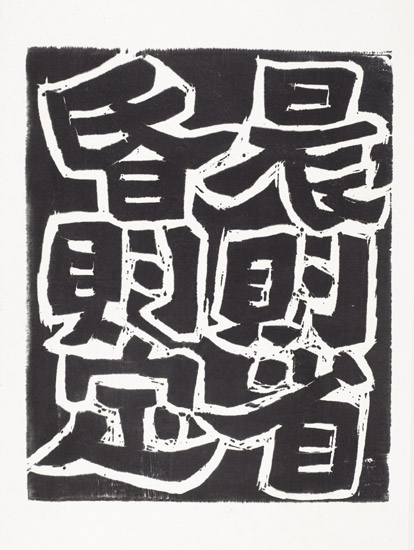 晨則省
昏則定